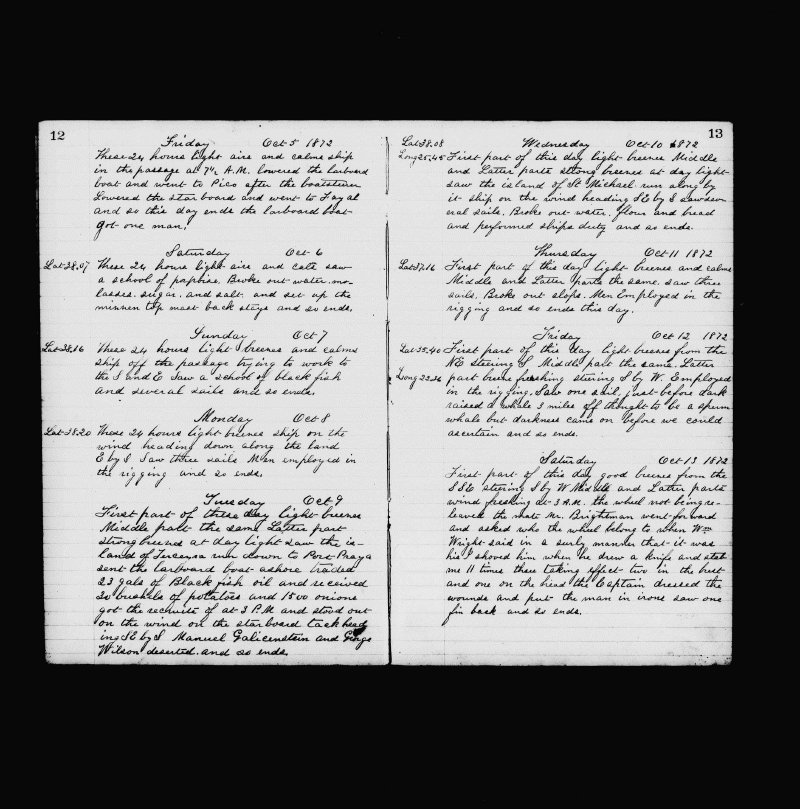 12
Friday Oct 5 1872
These 24 hours light airs and calms ship
in the passage at 7½ A.M. lowered the larboard
boat and went to Pico after the boatsteerer
Lowered the starboard and went to Fayal
and so this day ends the larboard boat
got one man.
Saturday Oct 6
Lat 38.07 These 24 hours light airs and cats saw
a school of papoise. Broke out water. mo-
lasses. sugar. and salt. and set up the
mizzen top mast back stays and so ends.
Sunday Oct 7
Lat 38.16 These 24 hours light breezes and calms
ship off the passage trying to work to
the S and E Saw a school of black fish
and several sails and so ends.
Monday Oct 8
Lat 38.20 These 24 hours light breezes ship on the
wind heading down along the land
E by S Saw three sails Men employed in
the rigging and so ends.
Tuesday Oct 9
First part of these day light breezes
Middle part the same Latter part
strong breezes at day light saw the is-
land of run down to Port Praya
sent the larboard boat ashore traded
23 gals of Black fish oil and received
30 bushels of potatoes and 1500 onions
got the recruits of at 3 P.M and stood out
on the wind on the starboard tack head
ing SE by S Manuel Galicenstein and George
Wilson deserted. and so ends.
13
Lat 38.08 Wednesday Oct 10 1872
Long 25.45 First part of this day light breezes Middle
and Latter parts strong breezes at day light
saw the island of St Michael run along by
it ship on the wind heading SE by S saw sev-
eral sails. Broke out water. flour and bread
and performed ships duty and so ends.
Thursday Oct 11 1872
Lat 37.16 First part of this day light breezes and calms
Middle and Latter parts the same. saw three
sails. Broke out slops. Men Employed in the
rigging and so ends this day.
Friday Oct 12 1872
Lat 35.40 First part of this day light breezes from the
NE steering S Middle part the same. Latter
Long 23.36 part breeze freshing steering S by W. Employed
in the rigging. Saw one sail, just before dark
raised a whale 3 miles off thought to be a sperm
whale but darkness came on before we could
ascertain and so ends.
Saturday Oct 13 1872
First part of this day good breezes from the
SSE steering S by W Middle and Latter parts
wind freshing at 3 A.M. the wheel not being re-
leaved the mate Mr. Brightman went forward
and asked who the wheel belong to when Wm
Wright said in a surly manner that it was
his I shoved him when he drew a knife and stab
me 11 times three taking effect two in the
and one on the head the Captain dressed the
wounds and put the man in irons saw one
fin back and so ends.